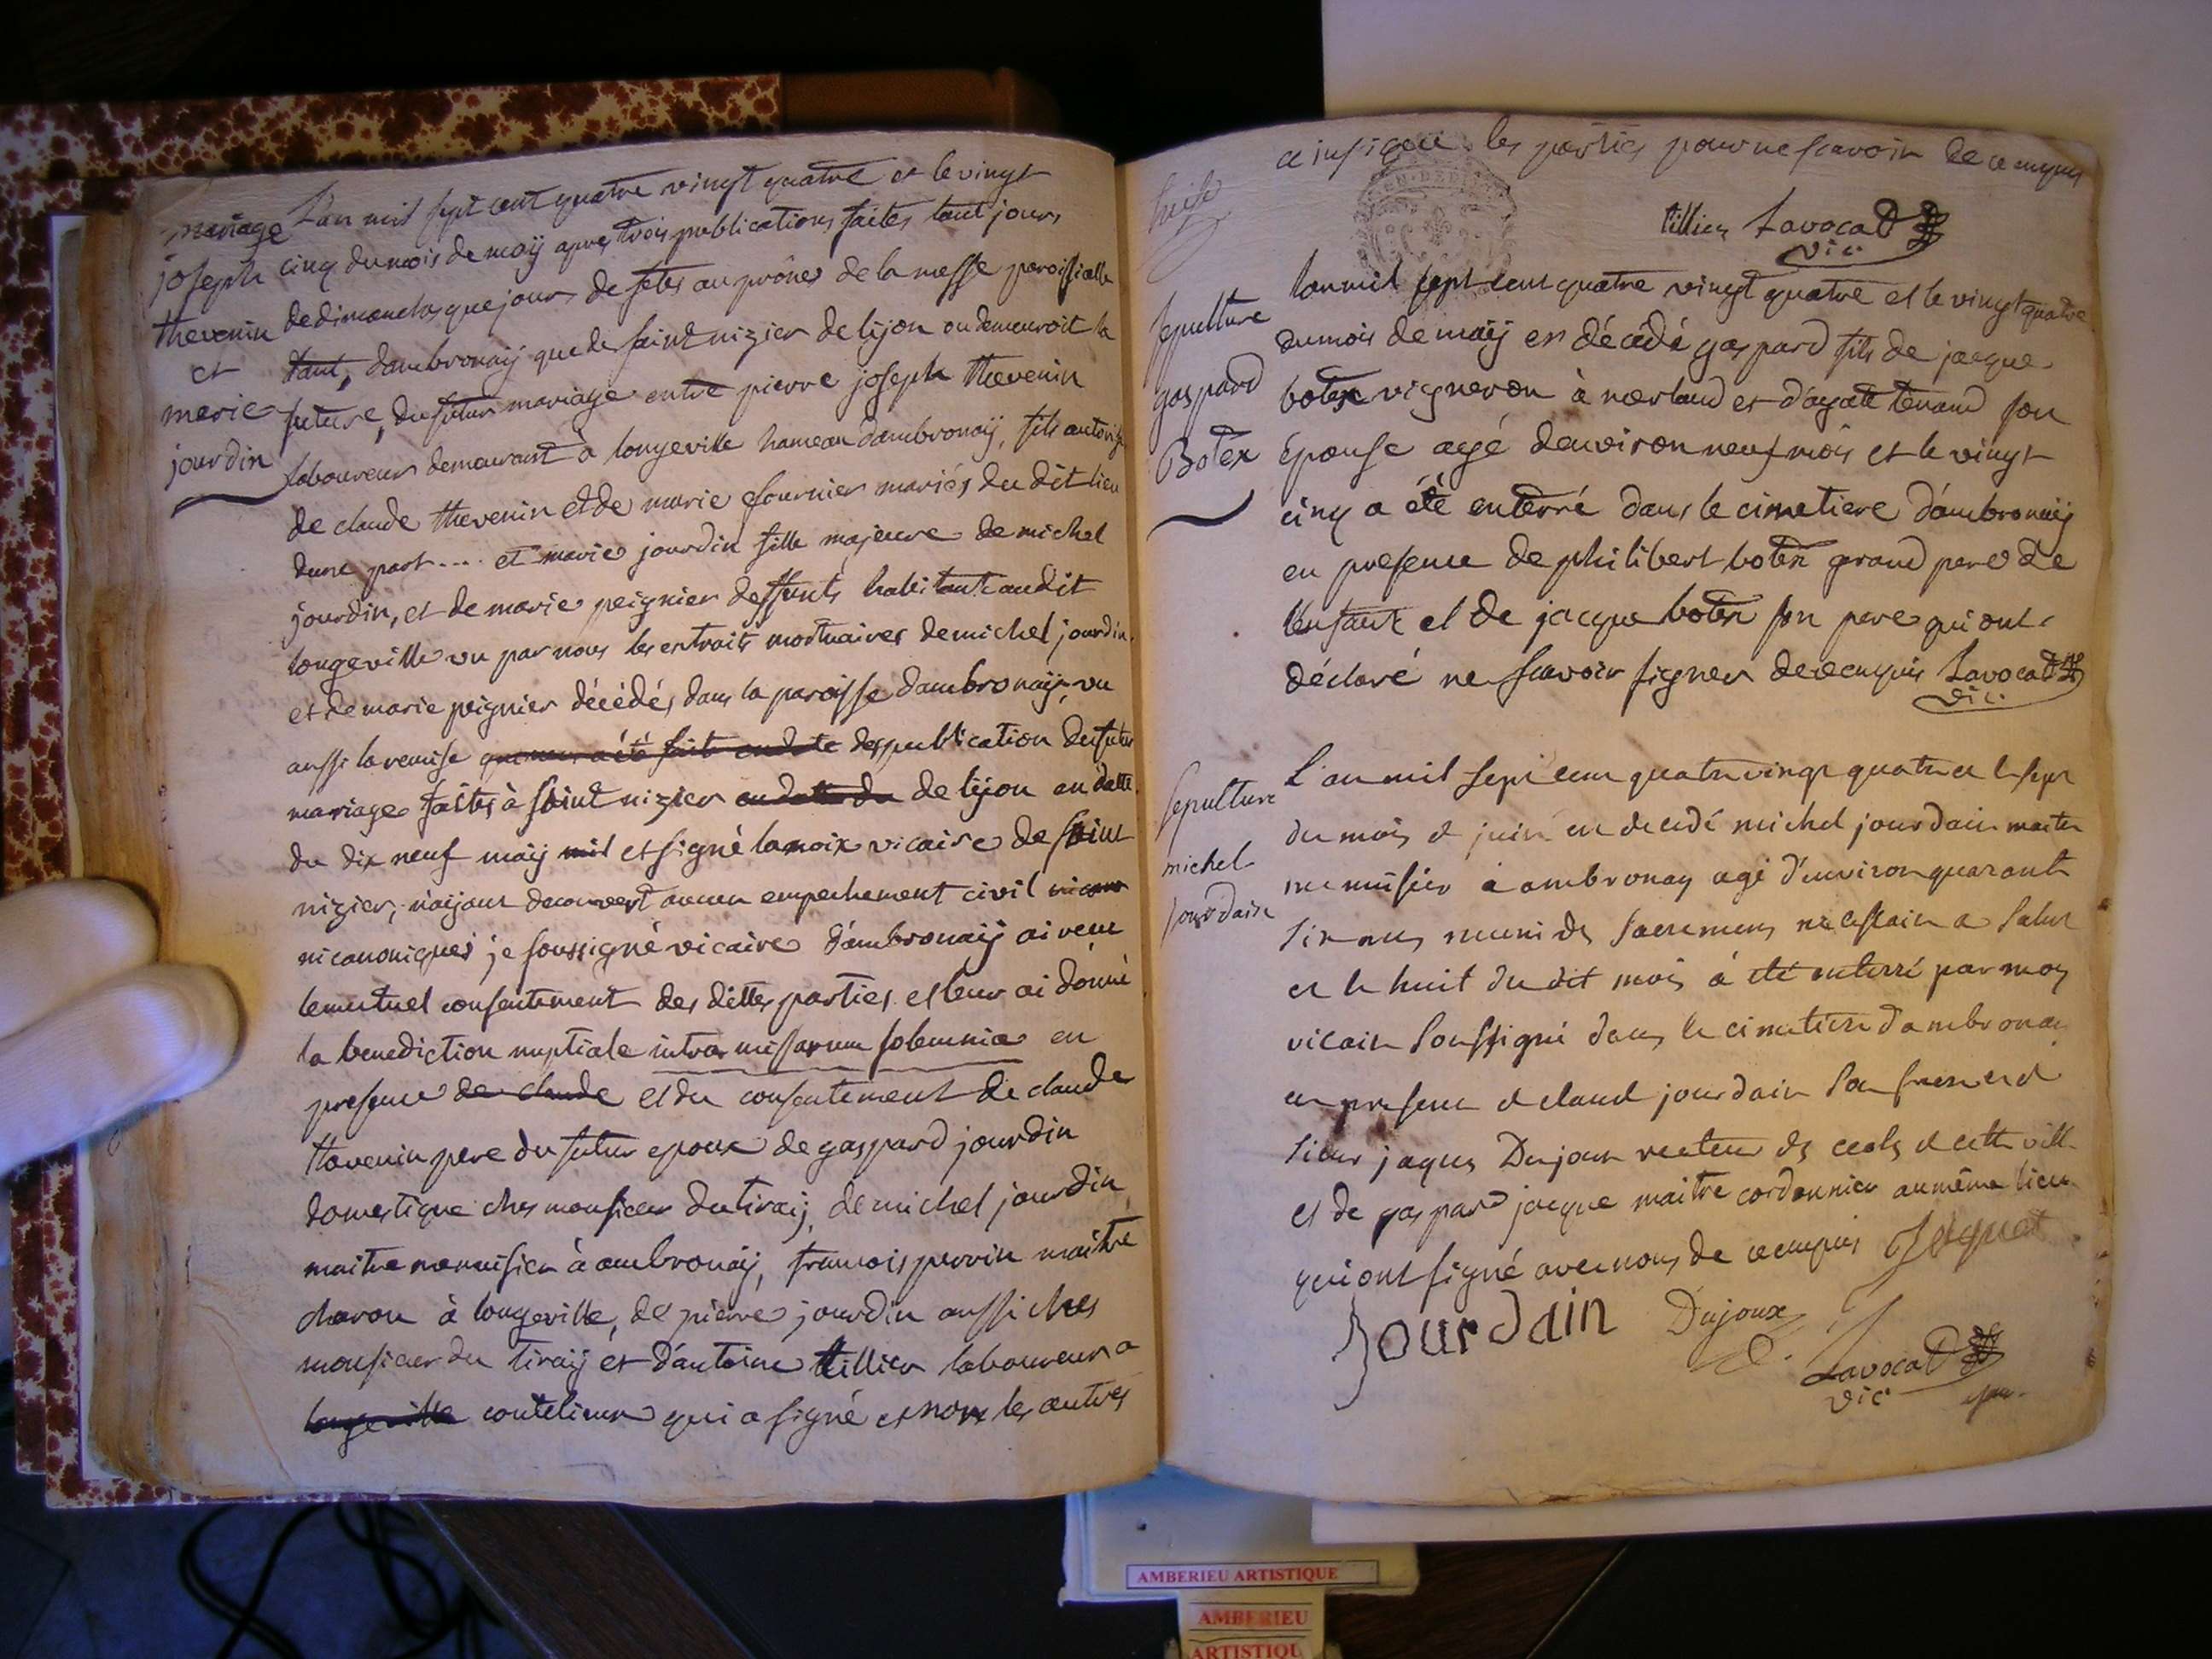 mariage
joseph
thevenin
et
marie
jourdin
L'an mil sept cent quatre vingt quatre et le vingt
cinq du mois de maÿ apres trois publications faites tant jours
de dimanches que jours de fetes au prônes de la messe paroissialle
tant, dambronaÿ que de saint nizier de lijon ou demeuroit la
future, du futur mariage entre pierre joseph thevenin
laboureur demeurant a longeville hameau dambronaÿ, fils autorisé
de claude thevenin et de marie fournier mariés du dit lieu
dune part .... et marie jourdin fille majeure de michel
jourdin, et de marie peignier deffunts habitant audit
longeville vu par nous les extraits mortuaires de michel jourdin
et de marie peignier décédés dans la paroisse dambronaÿ, vu
aussi la remise des publication du futur
mariage faites à saint nizier de lijon en datte
du dix neuf maÿ mil et signé lanoix vicaire de saint
nizier, n'aÿant decouvert aucun empechement civil
ni canoniques je soussigné vicaire d'ambronaÿ ai recu
le mutuel consentement des dittes parties et leur ai donné
la benediction nuptiale intra missarum solemnia en
presence de claude et du consentement de claude
thevenin pere du futur epoux de gaspard jourdin
domestique ches monsieur du tiraÿ, de michel jourdin
maitre menuisier à ambronaÿ, francois perrin maitre
charon à longeville, de pierre jourdin aussi ches
monsieur du tiraÿ et d'antoine tillier laboureur a
longeville coutelieux qui a signé et non les autres
ce requis les parties pour ne scavoir de ce enquis
tillier Lavocat
vic:
sepulture
gaspard
Botex
lan mil sept cent quatre vingt quatre et le vingt quatre
du mois de maÿ est décédé gaspard fils de jacque
botex vigneron à merland et d'agate tenand son
epouse agé denviron neuf mois et le vingt
cinq a été enterré dans le cimetiere d'ambronaÿ
en presence de philibert botex grand pere de
l'enfant et de jacque botex son pere qui ont
déclaré ne scavoir signer de ce enquis Lavocat
vic:
sepulture
michel
jourdain
L'an mil sept cent quatre vingt quatre et le sept
du mois de juin est decedé michel jourdain maitre
menuisier a ambronay agé d'environ quarante
six ans muni des sacremens necessaire a salut
et le huit du dit mois à été enterré par moy
vicaire soussigné dans le cimetiere d'ambronay
en presence de claude jourdain son frere et de
sieur jaques Dujoux recteur des ecoles de cette ville
et de gaspard jacque maitre cordonnier au même lieu
qui ont signé avec nous de ce enquis Jaquet
Jourdain Dujoux
Lavocat
vic:
AMBERIEU ARTISTIQUE
AMBERIEU
ARTISTIQU